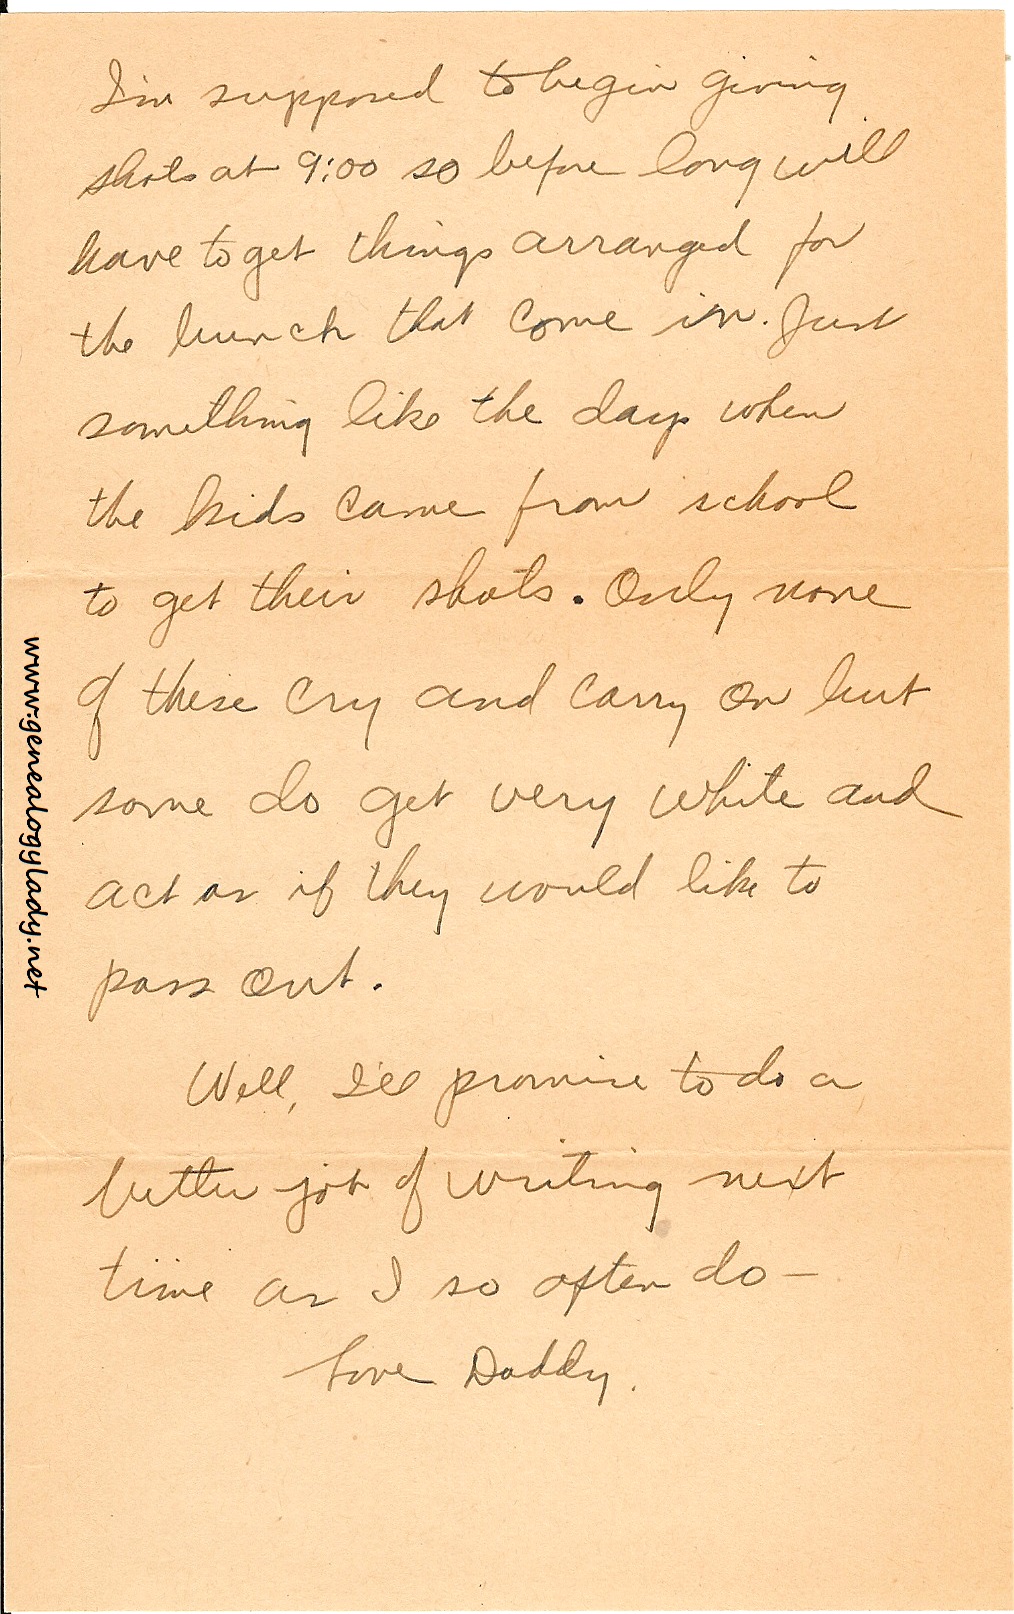 I'm supposed to begin giving
shots at 9:00 so before long will
have to get things arranged for
the bunch that come in. Just
something like the days when
the kids came from school
to get their shots. Only none
of these cry and carry on but
some do get very white and
act as if they would like to
pass out.
Well, I'll promise to do a
better job of writing next
time as I so often do –
Love Daddy.
www.genealogylady.net